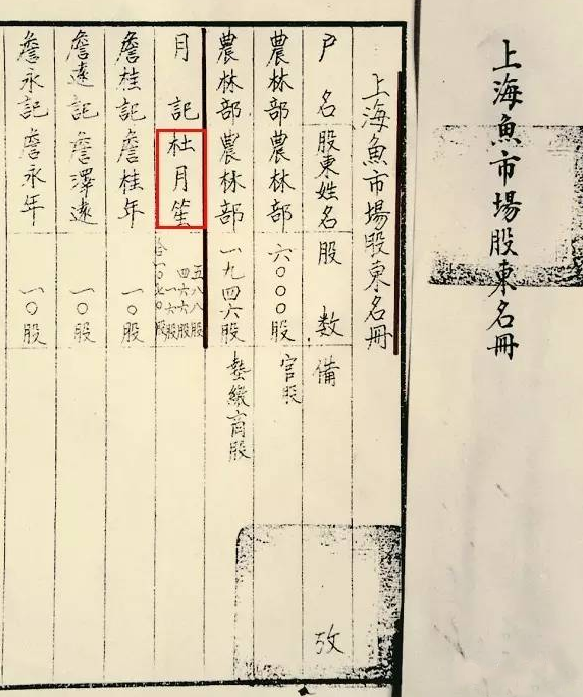 上海魚市場股東名冊
上海魚市場股東名冊
户名 股東姓名 股數 備攷
農林部 農林部 六〇〇〇股 官股
農林部 農林部 一九四六股 墊繳商股
月記 杜月笙 五八八股
四六六股
一六股
合一〇七〇股
詹桂記 詹桂年 一〇股
詹遠記 詹澤遠 一〇股
詹永記 詹永年 一〇股